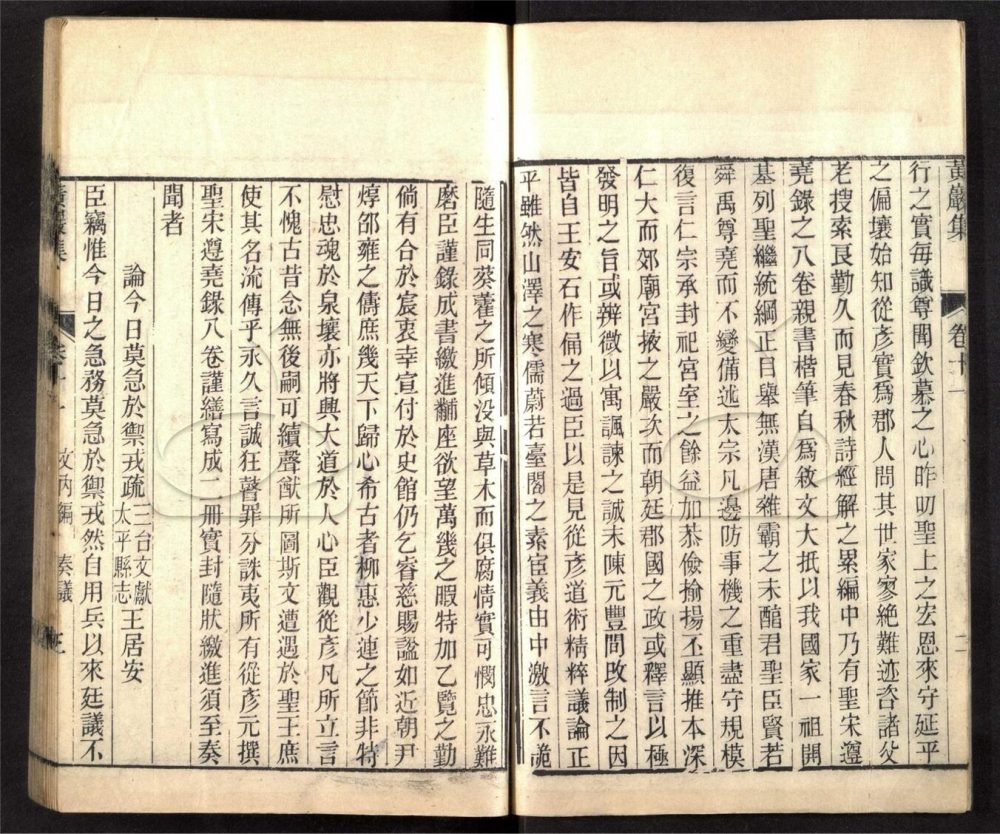 黃巖集
卷十一
二
行之實每識尊聞欽慕之心昨叨聖上之宏恩來守延平
之偏壤始知從彥實爲郡人問其世家寥絕難迹咨諸父
老搜索艮勤久而見春秋詩經解之累編中乃有聖宋遵
堯錄之八卷親書楷筆自爲敘文大抵以我國家一祖開
基列聖繼統綱正目舉無漢唐雜霸之未醕君聖臣賢若
舜禹尊堯而不變備述太宗凡邊防事機之重盡守規模
復言仁宗承封祀宮室之餘益加恭儉揄揚丕顯推本深
仁大而郊廟宮掖之嚴次而朝廷郡國之政或釋言以極
發明之旨或辨微以寓諷諫之誠末陳元豐間改制之因
皆自王安石作俑之過臣以是見從彥道術精粹議論正
平雖然山澤之寒儒蔚若臺閣之素宦義由中激言不詭
隨生同葵藿之所傾没與草木而俱腐情實可憫忠永難
磨臣謹錄成書繳進黼座欲望萬幾之暇特加乙覽之勤
倘有合於宸衷幸宣付於史館仍乞睿慈賜謚如近朝尹
焞邵雍之儔庶幾天下歸心希古者柳惠少連之節非特
慰忠魂於泉壤亦將興大道於人心臣觀從彥凡所立言
不愧古昔念無後嗣可續聲猷所圖斯文遭遇於聖王庶
使其名流傳乎永久言誠狂瞽罪分誅夷所有從彥元撰
聖宋遵堯錄八卷謹繕寫成二冊實封隨狀繳進須至奏
聞者
論今日莫急於禦戎疏三台文獻太平縣志王居安
臣竊惟今日之急務莫急於禦戎然自用兵以來廷議不
黃巖集
卷十一
攷丙編
奏議